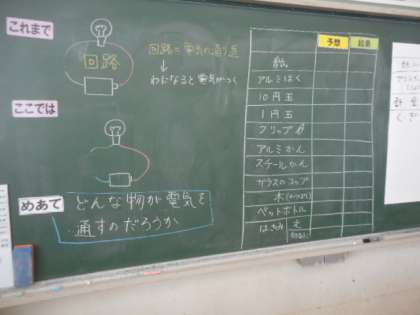 これまで
回路
回路=電気の通り道
↓
わになると電気がつく
ここでは
めあて
どんな物が電気を
通すのだろうか
予想 結果
紙
アルミはく
10円玉
1円玉
クリップ
アルミかん
スチールかん
ガラスのコップ
木(わりばし)
ペットボトル
はさみ